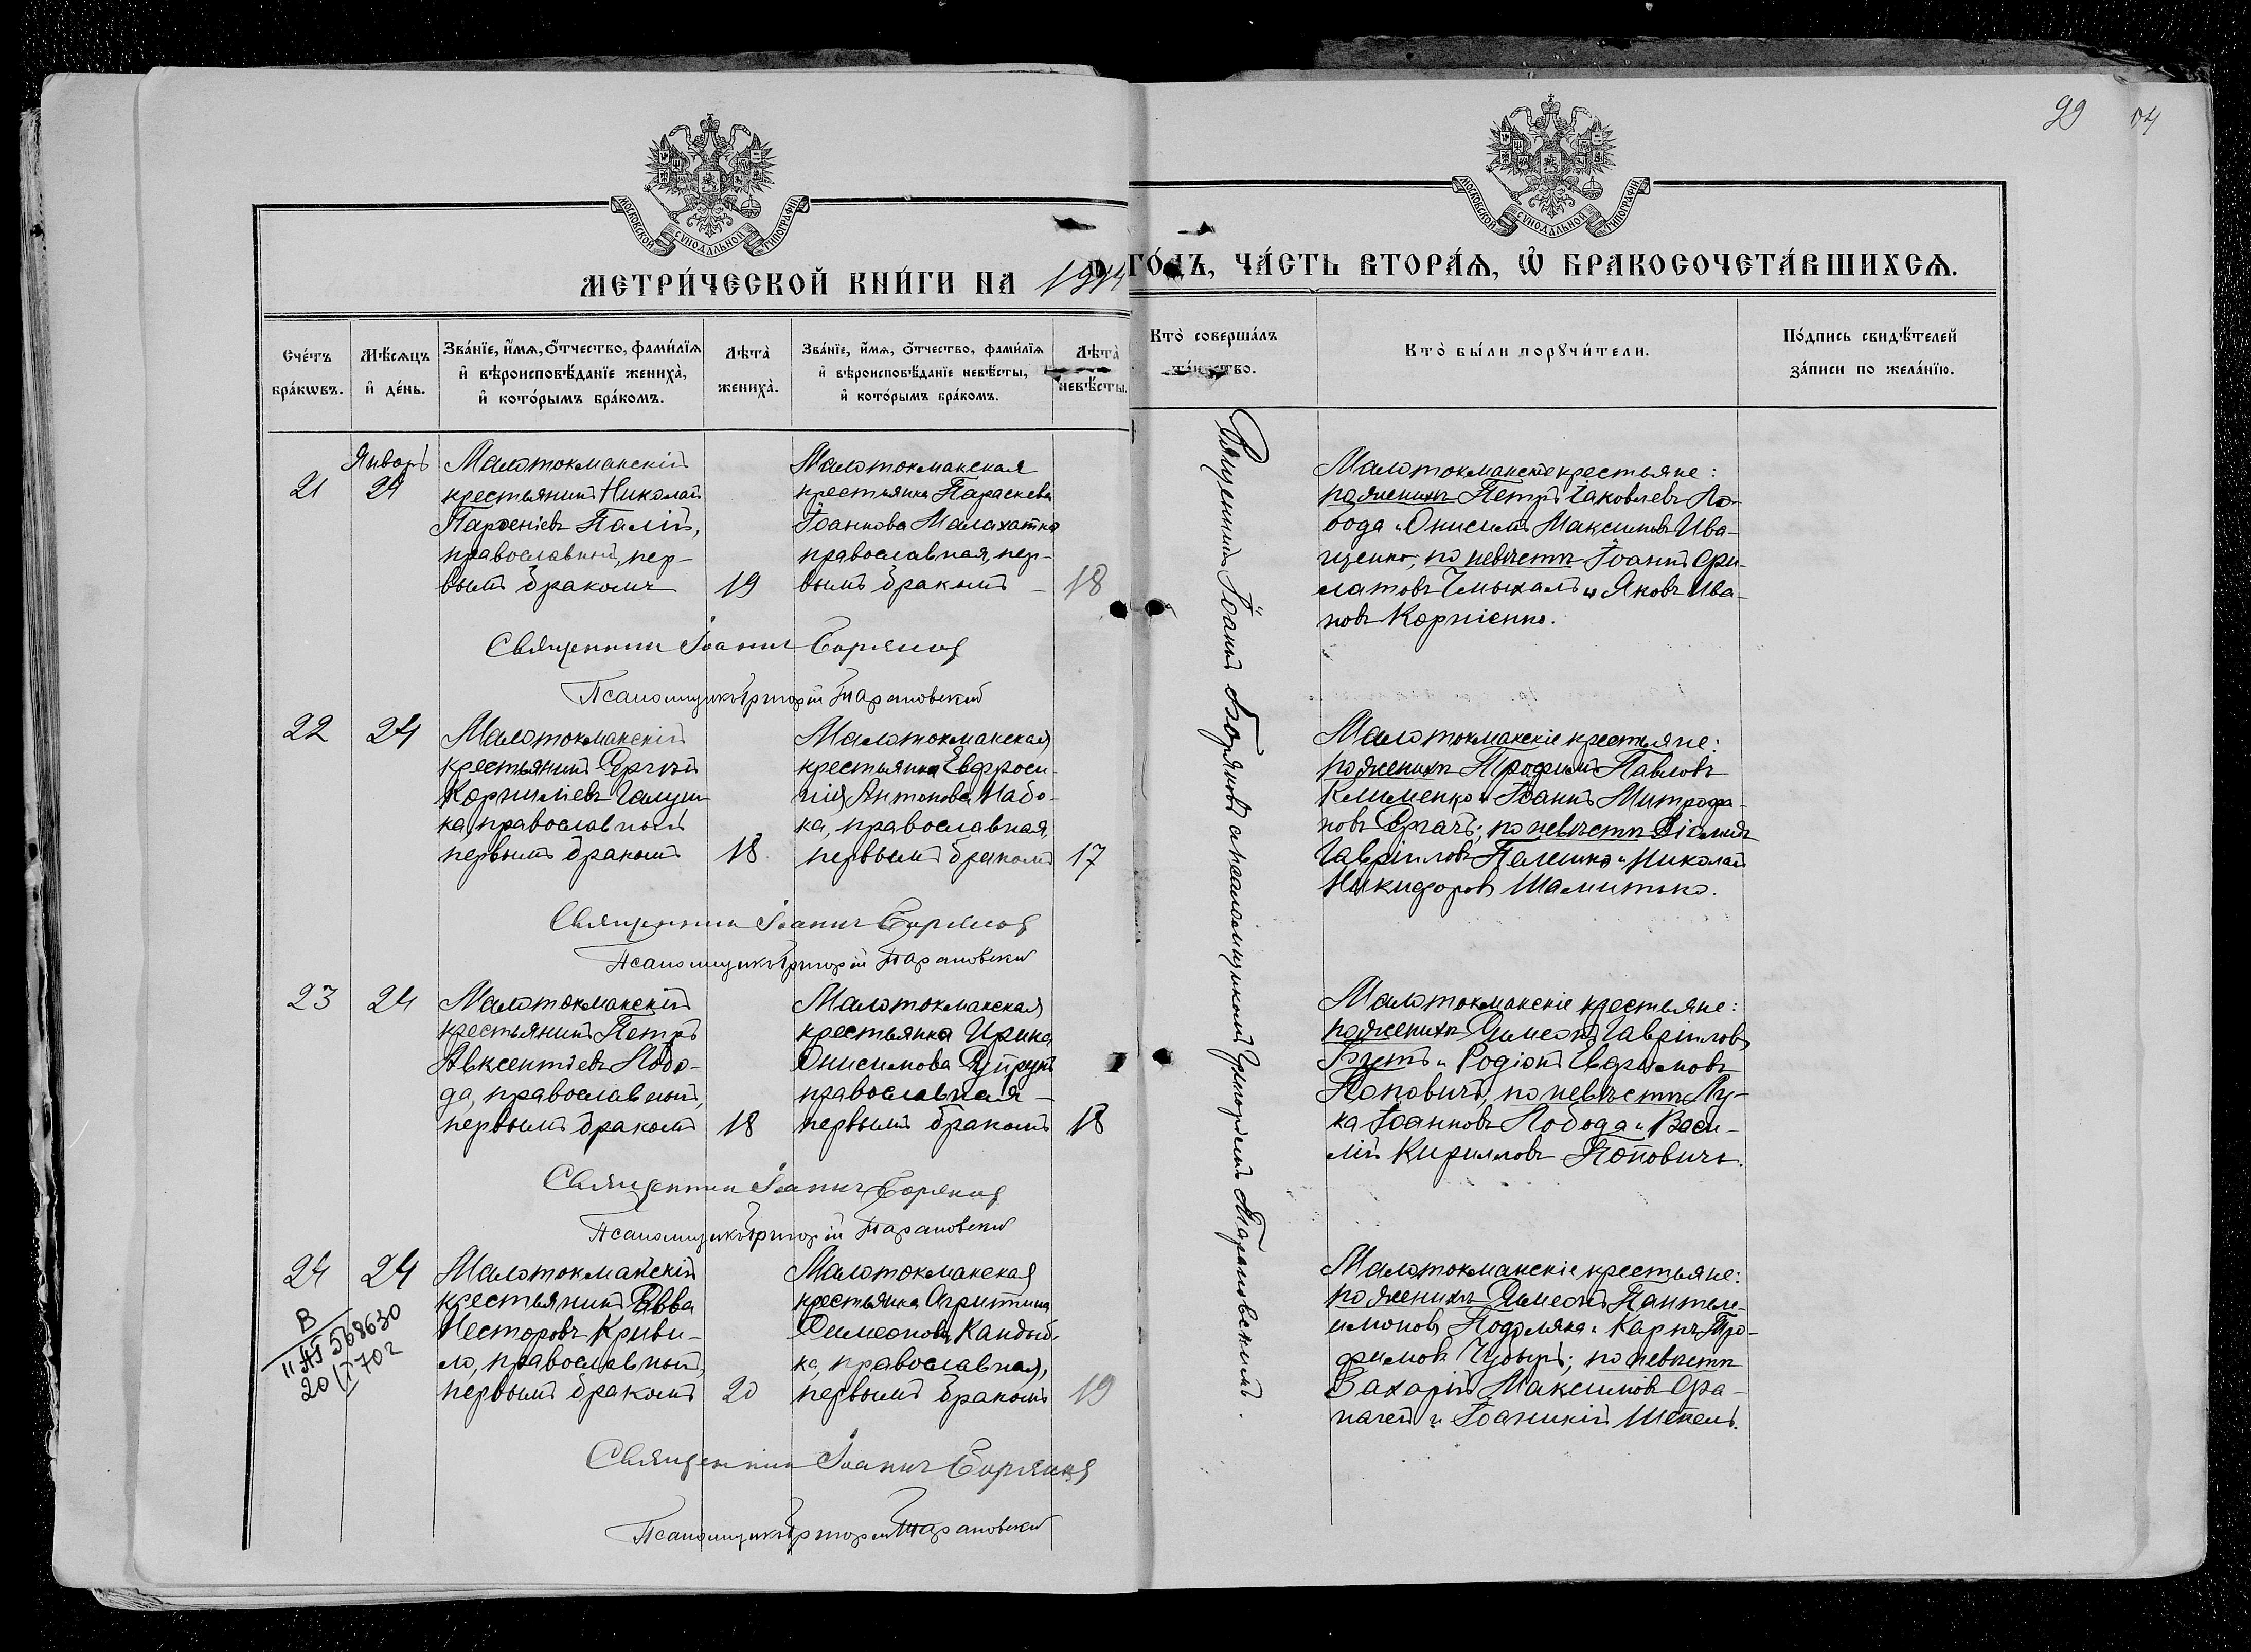 99 04
МОСКОВСКОЙ СУНОДАЛЬНОЙ ТИПОГРАФІИ
МОСКОВСКОЙ СУНОДАЛЬНОЙ ТИПОГРАФІИ
МЕТРИ́ЧЕСКОЙ КНИ́ГИ НА 1914 ГО́ДЪ, ЧА́СТЬ ВТОРА́Я, Ѡ҆ БРАКОСОЧЕТА́ВШИХСЯ.
Сче́тъ бра́кѡвъ.
Мѣ́сяцъ и҆ де́нь.
Зва́нїе, и҆́мя, ѻ҆́тчество, фами́лїя
и҆ вѣроисповѣ́данїе жениха̀,
и҆ кото́рымъ бра́комъ.
Лѣта̀ жениха̀.
Зва́нїе, и҆́мя, ѻ҆́тчество, фами́лїя
и҆ вѣроисповѣ́данїе невѣ́сты,
и҆ кото́рымъ бра́комъ.
Лѣта̀ невѣ́сты.
Кто̀ соверша́лъ
та́инство.
Кто̀ бы́ли порꙋчи́тели.
По́дпись свидѣ́телей
за́писи по жела́нїю.
21
Январь
24
Малотокманскій
крестьянинъ Николай
Парѳеніевъ Палій,
православный, пер-
вымъ бракомъ
19
Малотокманская
крестьянка Параскева
Іоаннова Малахатка
православная, пер-
вымъ бракомъ
18
Малотокманскіе крестьяне:
по женихѣ Петръ Іаковлевъ Ло-
бода и Онисимъ Максимовъ Ива-
щенко, по невѣстѣ Іоаннъ Фи-
латовъ и Яковъ Ива-
новъ Корніенко.
Священникъ Іоаннъ Боряновъ
Псаломщикъ Григорій Тарановскій
22
24
Малотокманскій
крестьянинъ Сергѣй
Корниліевъ Галуш-
ка, православный
первымъ бракомъ
18
Малотокманская
крестьянка Евфроси-
нія Антонова Набо-
ка, православная,
первымъ бракомъ
17
Малотокманскіе крестьяне:
по женихѣ Трофимъ Павловъ
Клименко и Іоаннъ Митрофа-
новъ Деркачъ; по невѣстѣ
Гавріиловъ и Николай
Никифоровъ
Священникъ Іоаннъ Боряновъ
Псаломщикъ Григорій Тарановскій
23
24
Малотокманскій
крестьянинъ Петръ
Авксентіевъ Лобо-
да, православный,
первымъ бракомъ
18
Малотокманская
крестьянка Ирина
Онисимова
православная
первымъ бракомъ
18
Малотокманскіе крестьяне:
по женихѣ Симеонъ Гавріиловъ
Бутъ и Родіонъ Евфимовъ
Поповичъ, по невѣстѣ Лу-
ка Іоанновъ Лобода и Васи-
лій Кирилловъ Поповичъ.
Священникъ Іоаннъ Боряновъ
Псаломщикъ Григорій Тарановскій
24
24
Малотокманскій
крестьянинъ Савва
Несторовъ Криви-
ло, православный,
первымъ бракомъ
20
Малотокманская
крестьянка Агриппина
Симеонова Кандыб-
ка, православная,
первымъ бракомъ
19
Малотокманскіе крестьяне:
по женихѣ Симеонъ Пантеле-
имоновъ Подоляка и Карпъ Тро-
фимовъ по невѣстѣ
Захарій Максимовъ
и Іоанникій Шепель.
В
II АП 568630
Священникъ Іоаннъ Боряновъ
Псаломщикъ Григорій Тарановскій
Священникъ Іоаннъ Боряновъ съ псаломщикомъ Григоріемъ Тарановскимъ.